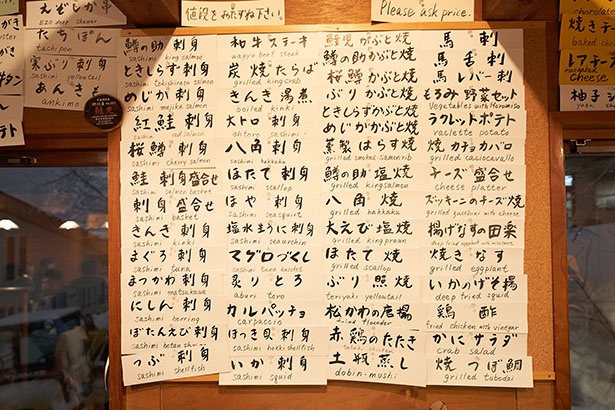 値段をおたずね下さい。
Please ask price.
えぞしか串
EZO deer skewer
たちぽん
tachipon
寒ぶり刺身
sashimi yellowtail
あんきも
ankimo
鱒の助 刺身
sashimi king salmon
ときしらず 刺身
sashimi tokishirazu salmon
めじか 刺身
sashimi mejika salmon
紅鮭 刺身
sashimi red salmon
桜鱒 刺身
sashimi cherry salmon
鮭 刺身盛合せ
sashimi salmon basket
刺身 盛合せ
sashimi basket
きんき 刺身
sashimi kinki
まぐろ 刺身
sashimi tuna
まつかわ 刺身
sashimi matsukawa
にしん 刺身
sashimi herring
ぼたんえび 刺身
sashimi botan shrimp
つぶ 刺身
sashimi shellfish
和牛ステーキ
wagyu beef steak
炭焼たらば
grilled king crab
きんき 湯煮
boiled kinki
大トロ 刺身
ohtoro sashimi
八角 刺身
sashimi hakkaku
ほたて 刺身
sashimi scallop
ほや 刺身
sashimi seasquirt
塩水うに 刺身
sashimi seaurchin
マグロづくし
sashimi tuna basket
炙りとろ
aburi toro
カルパッチョ
carpaccio
ほっき貝 刺身
sashimi hokki shellfish
いか 刺身
sashimi squid
鮭児かぶと焼
鱒の助かぶと焼
桜鱒かぶと焼
ぶりかぶと焼
ときしらずかぶと焼
めじかかぶと焼
薫製はらす焼
grilled smoked salmon rib
鱒の助 塩焼
grilled kingsalmon
八角 焼
grilled hakkaku
大えび塩焼
grilled king prawn
ほたて 焼
grilled scallop
ぶり 照焼
teriyaki yellowtail
松かわの唐揚
fried flounder
赤鶏のたたき
tataki chicken
土瓶蒸し
dobin-mushi
馬刺
馬舌刺
馬レバー刺
もろみ野菜セット
Vegetables with Moromiso
ラクレットポテト
raclette potato
焼カチョカバロ
grilled caciocavallo
チーズ 盛合せ
cheese platter
ズッキーニのチーズ焼
grilled zucchini with cheese
揚げなすの田楽
焼きなす
grilled eggplant
いかのげそ揚
deep fried squid
鶏酢
fried chicken with vinegar
かにサラダ
crab salad
焼つぼ鯛
grilled tobodai
chocolate
焼きチー
レアチーズ
柚子シ